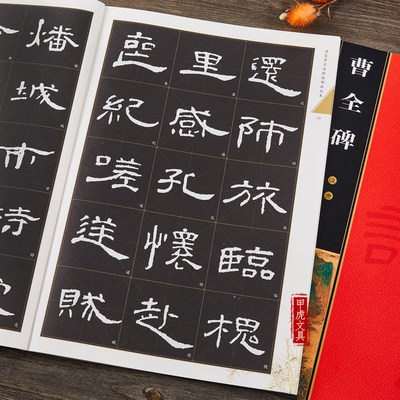 還師旅臨槐
里感孔懷赴
喪紀嗟逆賊
燔城市特
曹全碑
甲虎文具